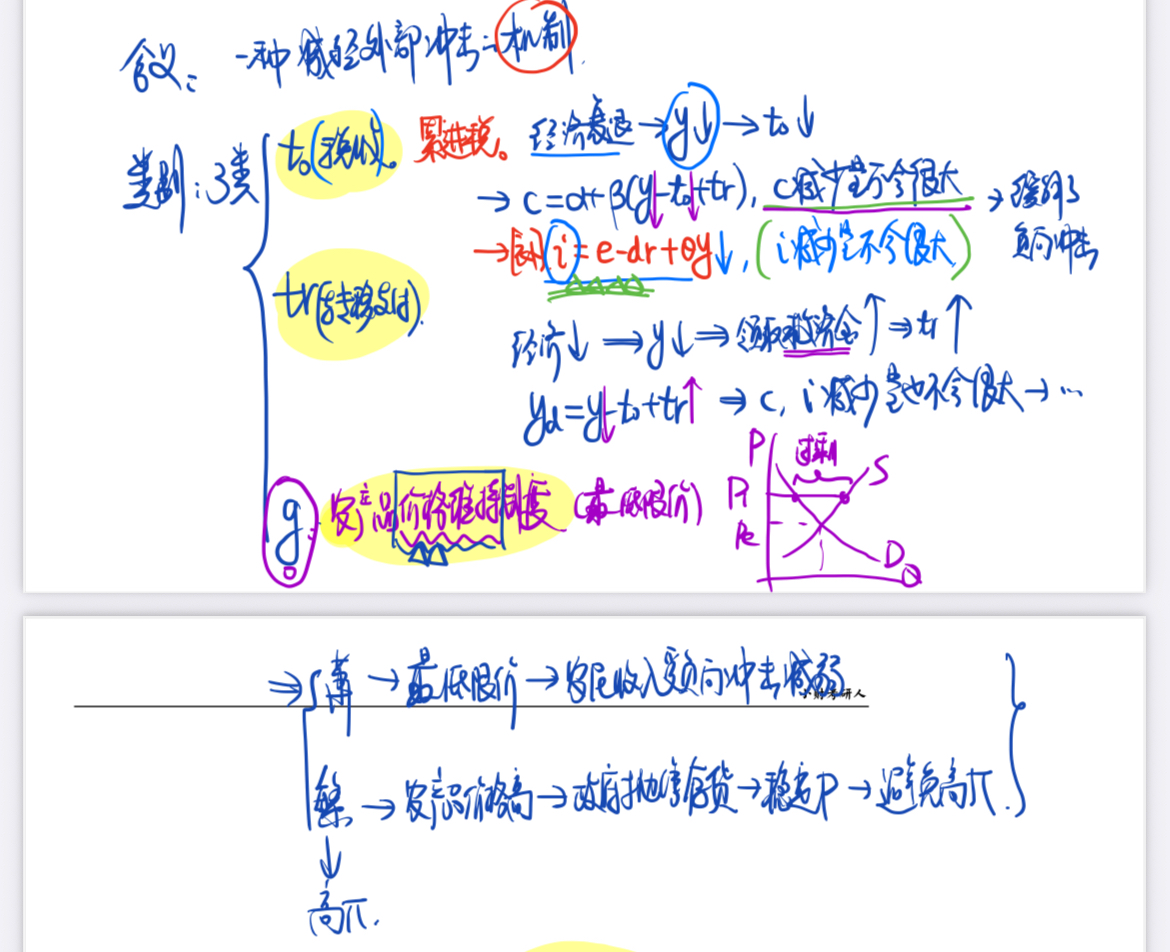 含义: 一种减轻外部冲击之机制.
类别:3类
t₀(税收)。 累进税。 经济衰退→y↓→t₀↓
→ c=α+β(y-t₀+tr), c减少量不会很大 → 缓解了负向冲击
→ i=e-dr+θy↓, (i减少量不会很大)
tr(转移支付).
经济↓ ⇒ y↓ ⇒ 领取救济金↑ ⇒ tr↑
yd=y-t₀+tr↑ ⇒ c, i减少量也不会很大→…
g. 农产品价格维持制度 (最低限价)
P 过剩 S
P₁
Pe
D Q
⇒ 萧 → 最低限价 → 农民收入负向冲击减弱
小财考研人
繁 → 农产品价格高 → 政府抛售存货 → 稳定P → 避免高π.
↓
高π.